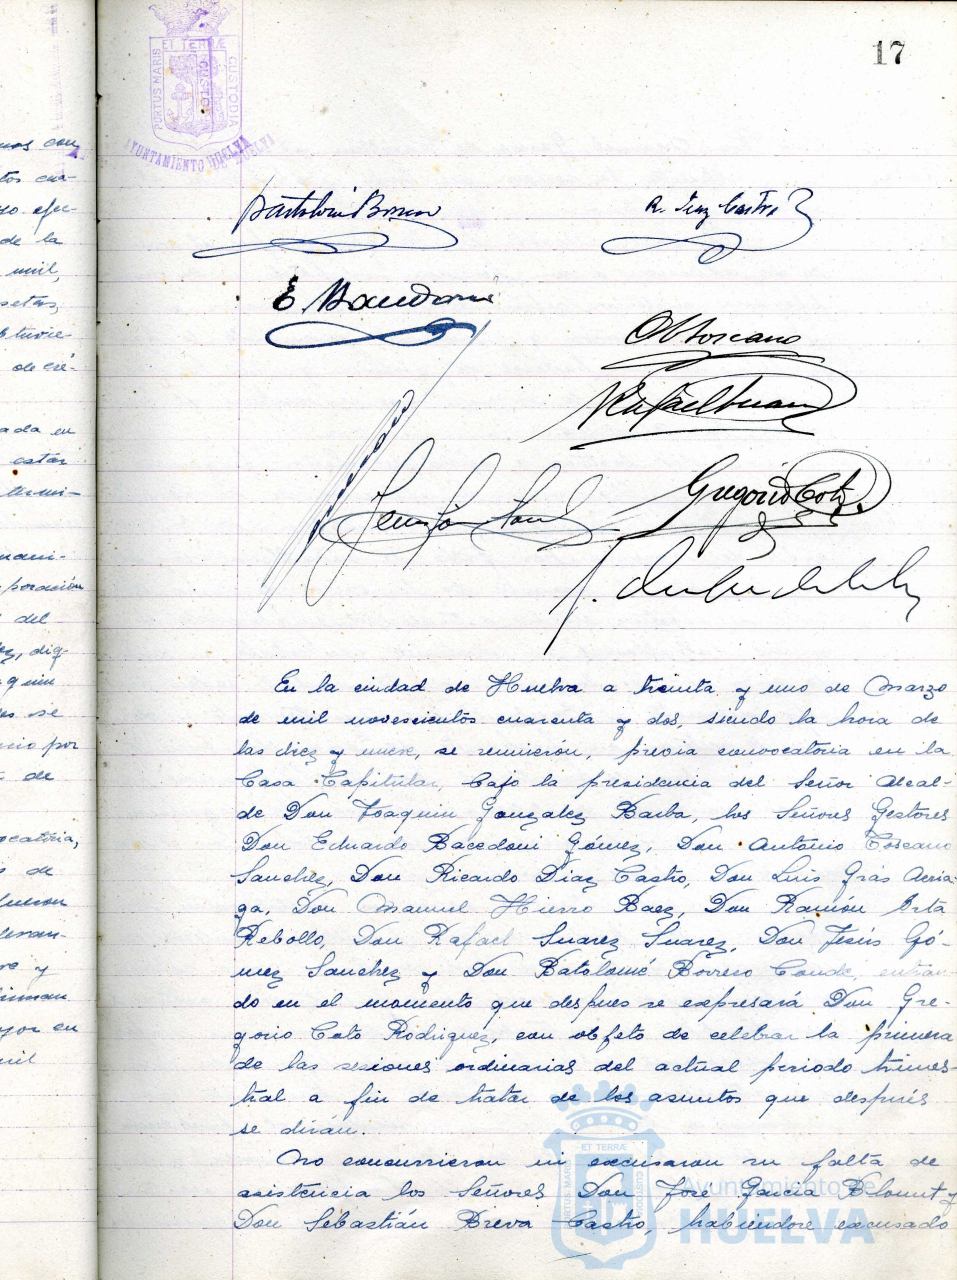 17
PORTUS MARIS ET TERRÆ CUSTODIA
AYUNTAMIENTO HUELVA
nos con
de la
mil,
setas,
de cré-
ada en
estar
poración
del
dig-
se
por
de
ocatoria,
de
fueron
y
en
mil
Bartolomé Borrero
R. Diaz Castro
E. Bacedoni
A Toscano
Rafael Suarez
Gregorio Coto
En la ciudad de Huelva a treinta y uno de Marzo
de mil novescientos cuarenta y dos, siendo la hora de
las diez y nueve, se reunieron, previa convocatoria en la
Casa Capitular, bajo la presidencia del Señor Alcal-
de Don Joaquin Gonzalez Barba, los Señores Gestores
Don Eduardo Bacedoni Gómez, Don Antonio Toscano
Sanchez, Don Ricardo Diaz Castro, Don Luis Gras Arria-
ga, Don Manuel Hierro Baez, Don Ramón Irta
Rebollo, Don Rafael Suarez Suarez, Don Jesús Gó-
mez Sanchez y Don Batolomé Borrero Conde, entran-
do en el momento que despues se expresará Don Gre-
gorio Coto Rodriguez, con objeto de celebrar la primera
de las sesiones ordinarias del actual periodo trimes-
tral a fin de tratar de los asuntos que después
se dirán.
No concurrieron ni excusaron su falta de
asistencia los Señores Don José Garcia Blount y
Don Sebastián Breva Castro, habiendose excusado
ET TERRÆ
PORTUS MARIS
CUSTODIA
Ayuntamiento de
HUELVA